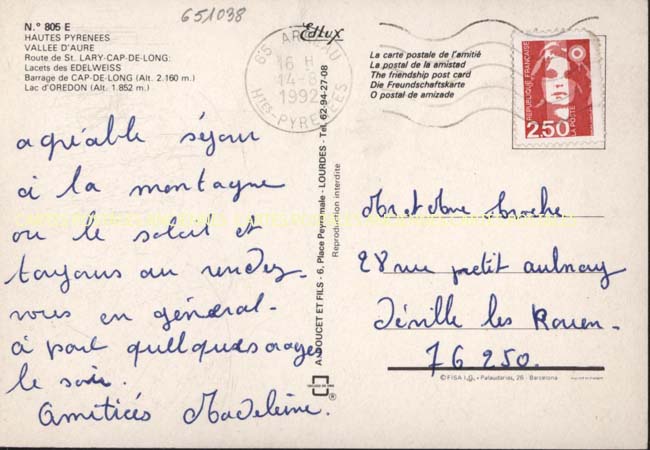 651038
N.° 805 E
HAUTES PYRENEES
VALLEE D'AURE
Route de St. LARY-CAP-DE-LONG:
Lacets des EDELWEISS
Barrage de CAP-DE-LONG (Alt. 2.160 m.)
Lac d'OREDON (Alt. 1.852 m.)
EdLux
65
16 H
14-8
1992
HTES-PYRENEES
La carte postale de l'amitié
La postal de la amistad
The friendship post card
Die Freundschaftskarte
O postal de amizade
REPUBLIQUE FRANÇAISE
2,50
LA POSTE
agréable séjour
à la montagne
ou le soleil et
toujours au rendez-
vous en général.
à part quelques orages
le soir.
Amitiés Madeleine.
A. DOUCET ET FILS - 6, Place Peyramale - LOURDES - Tel. 62-94-27-08
Reproduction interdite
Mr et Mme
28 rue petit aulnay
Déville les Rouen.
76250.
© FISA I.G. - Palaudarias, 26 - Barcelona